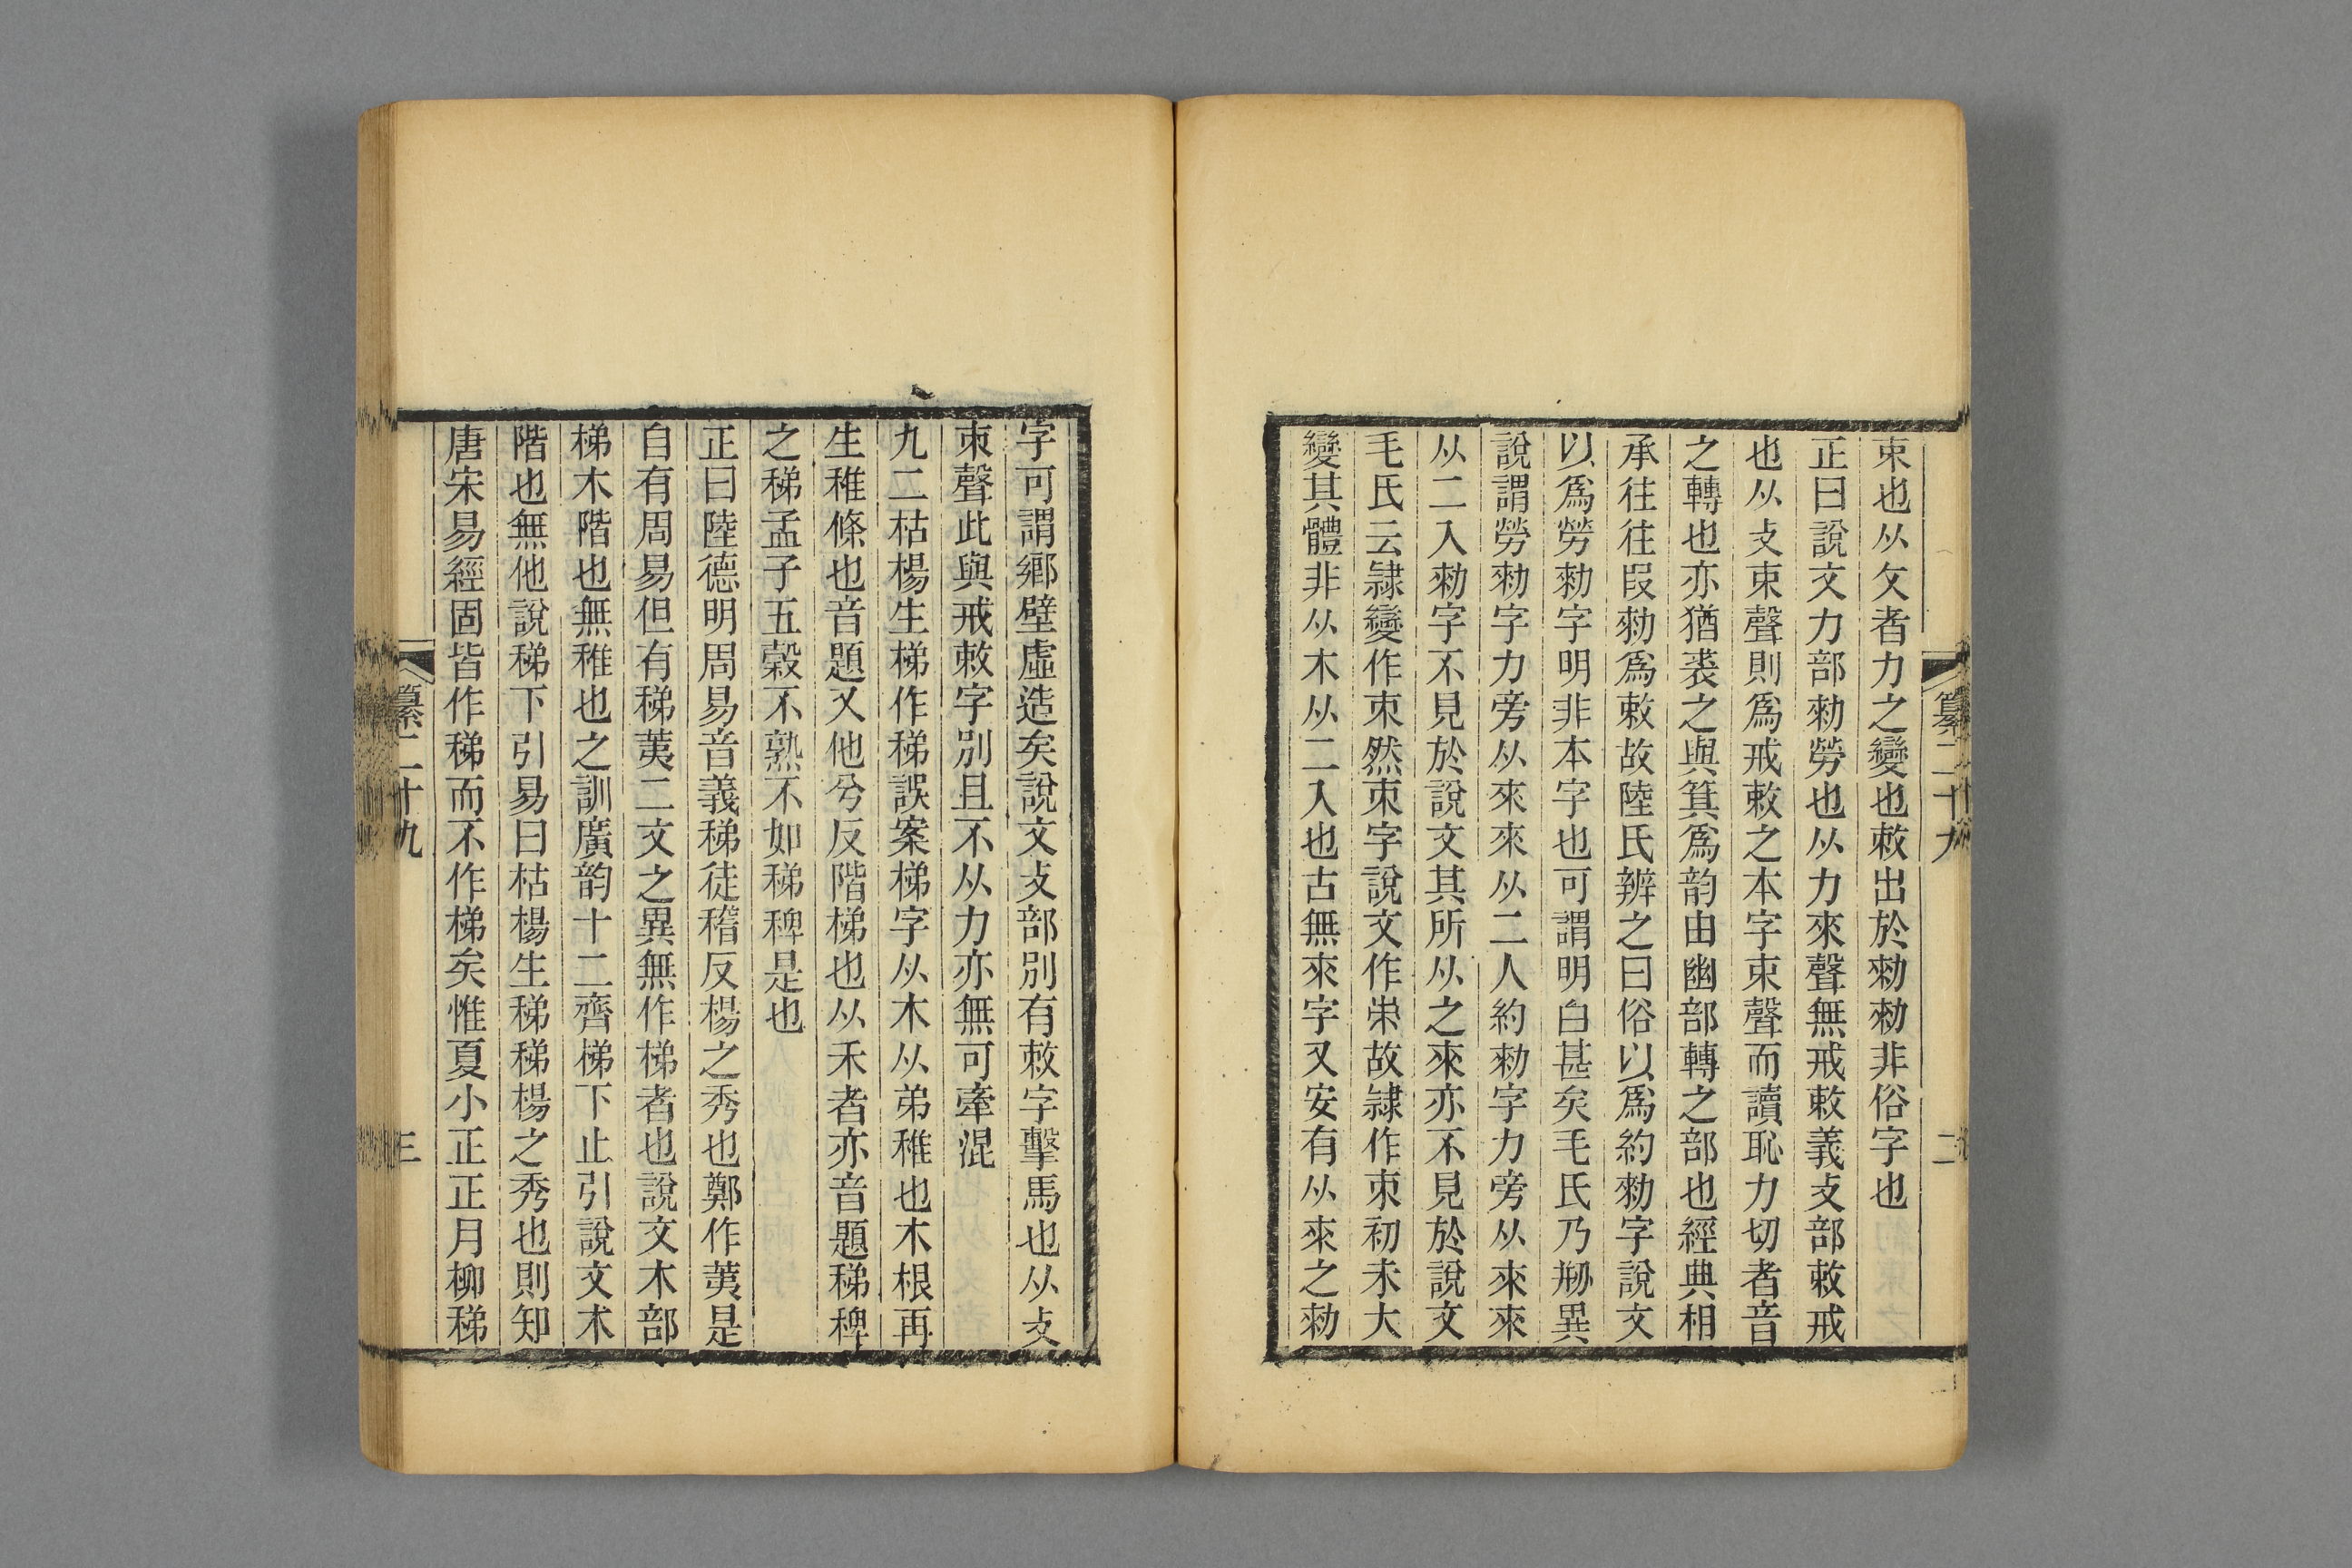 纂二十九 二
朿也从攵者力之變也敕出於勑勑非俗字也
正曰說文力部勑勞也从力來聲無戒敕義攴部敕戒
也从攴束聲則爲戒敕之本字束聲而讀恥力切者音
之轉也亦猶裘之與箕爲韵由幽部轉之部也經典相
承往往叚勑爲敕故陸氏辨之曰俗以爲約勑字說文
以爲勞勑字明非本字也可謂明白甚矣毛氏乃剏異
說謂勞勑字力旁从來來从二人約勑字力旁从來來
从二入勑字不見於說文其所从之來亦不見於說文
毛氏云隷變作朿然朿字說文作𣐺故隷作朿初未大
變其體非从木从二入也古無來字又安有从來之勑
字可謂鄉壁虛造矣說文攴部別有敕字擊馬也从攴
朿聲此與戒敕字別且不从力亦無可牽混
九二枯楊生梯作稊誤案梯字从木从弟稚也木根再
生稚條也音題又他兮反階梯也从禾者亦音題稊稗
之稊孟子五穀不熟不如稊稗是也
正曰陸德明周易音義稊徒稽反楊之秀也鄭作荑是
自有周易但有稊荑二文之異無作梯者也說文木部
梯木階也無稚也之訓廣韵十二齊梯下止引說文木
階也無他說稊下引易曰枯楊生稊稊楊之秀也則知
唐宋易經固皆作稊而不作梯矣惟夏小正正月柳稊
纂二十九 三